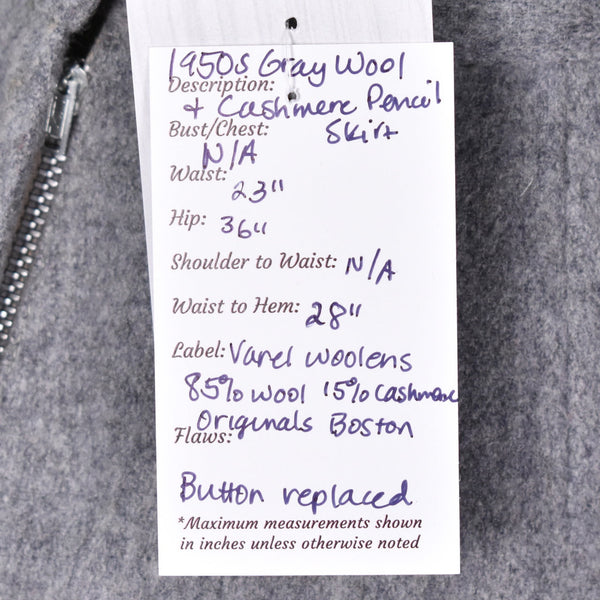 1950s Gray Wool
Description:
+ Cashmere Pencil
Bust/Chest: Skirt
N/A
Waist:
23"
Hip: 36"
Shoulder to Waist: N/A
Waist to Hem: 28"
Label: Varel woolens
85% wool 15% Cashmere
Originals Boston
Flaws:
Button replaced
*Maximum measurements shown
in inches unless otherwise noted